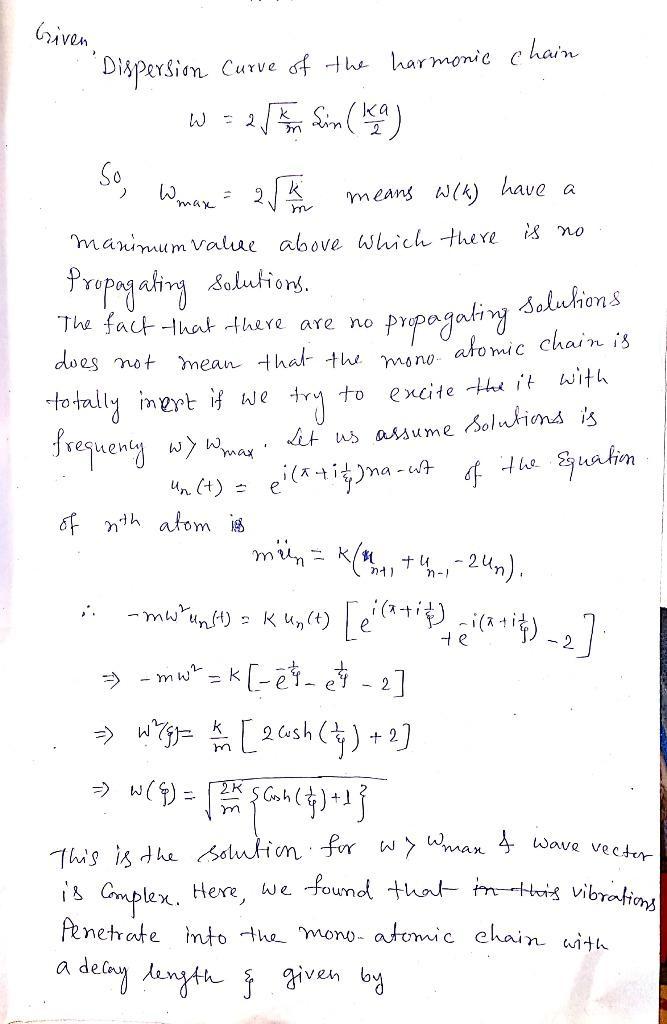 Given,
Dispersion Curve of the harmonic chain
W = 2√(K/m) Sin(Ka/2)
So, Wmax = 2√(K/m) means W(k) have a
maximum value above which there is no
Propagating Solutions.
The fact that there are no propagating Solutions
does not mean that the mono-atomic chain is
totally inert if we try to excite the it with
frequency w > wmax. Let us assume Solutions is
un(t) = e^{i(π+i1/ξ)na-wt} of the Equation
of nth atom is
mün = K(un+1 + un-1 - 2un).
∴ -mw²un(t) = K un(t) [e^{i(π+i1/ξ)} + e^{-i(π+i1/ξ)} - 2]
⇒ -mw² = K[-e^{-1/ξ} - e^{1/ξ} - 2]
⇒ w²(ξ) = K/m [2 Cosh(1/ξ) + 2]
⇒ w(ξ) = √(2K/m {Cosh(1/ξ)+1})
This is the solution for w > wmax & wave vector
is Complex. Here, we found that in this vibrations
Penetrate into the mono-atomic chain with
a decay length ξ given by